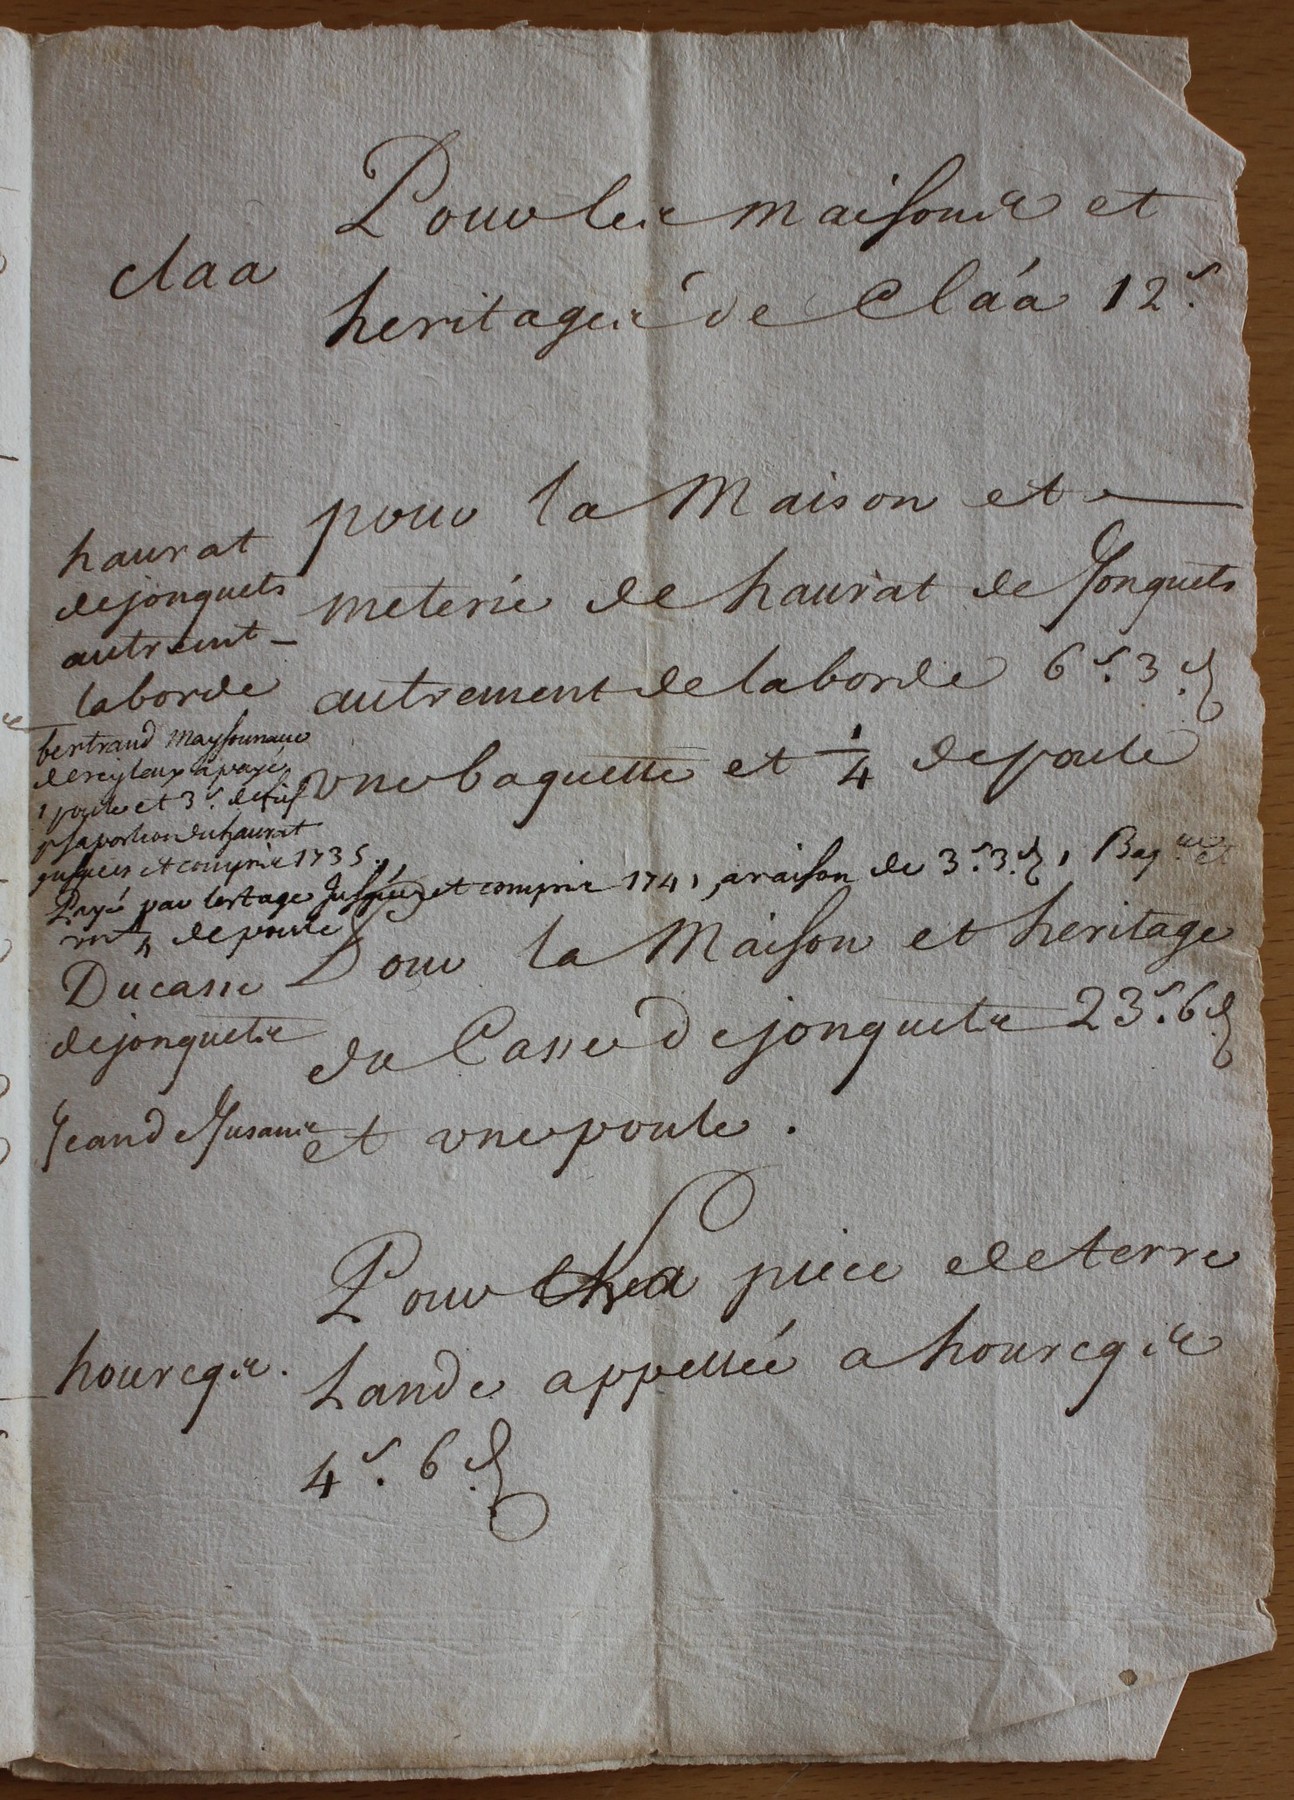 claa
Pour les maisons et
heritages de Cláa 12 s.
haurat
de jonquets
autremt
laborde
pour la Maison et
meterie de haurat de Jonquets
autrement de laborde 6 s. 3 d.
une baguette et 1/4 de poule
bertrand maysonnave
a payé
1 poule et 3 s. de fief
pr sa portion du haurat
jusques et compris 1735.
Payé par lestage jusques et compris 1741, a raison de 3 s. 3 d., 1 Bag.te et
de poule
Ducasse
de jonquets
Jean de Jusans
Pour la Maison et heritage
du Casse de jonquets 23 s. 6 d.
et une poule.
hourcqs.
Pour piece de terre
Lande appellée a hourcqs
4 s. 6 d.